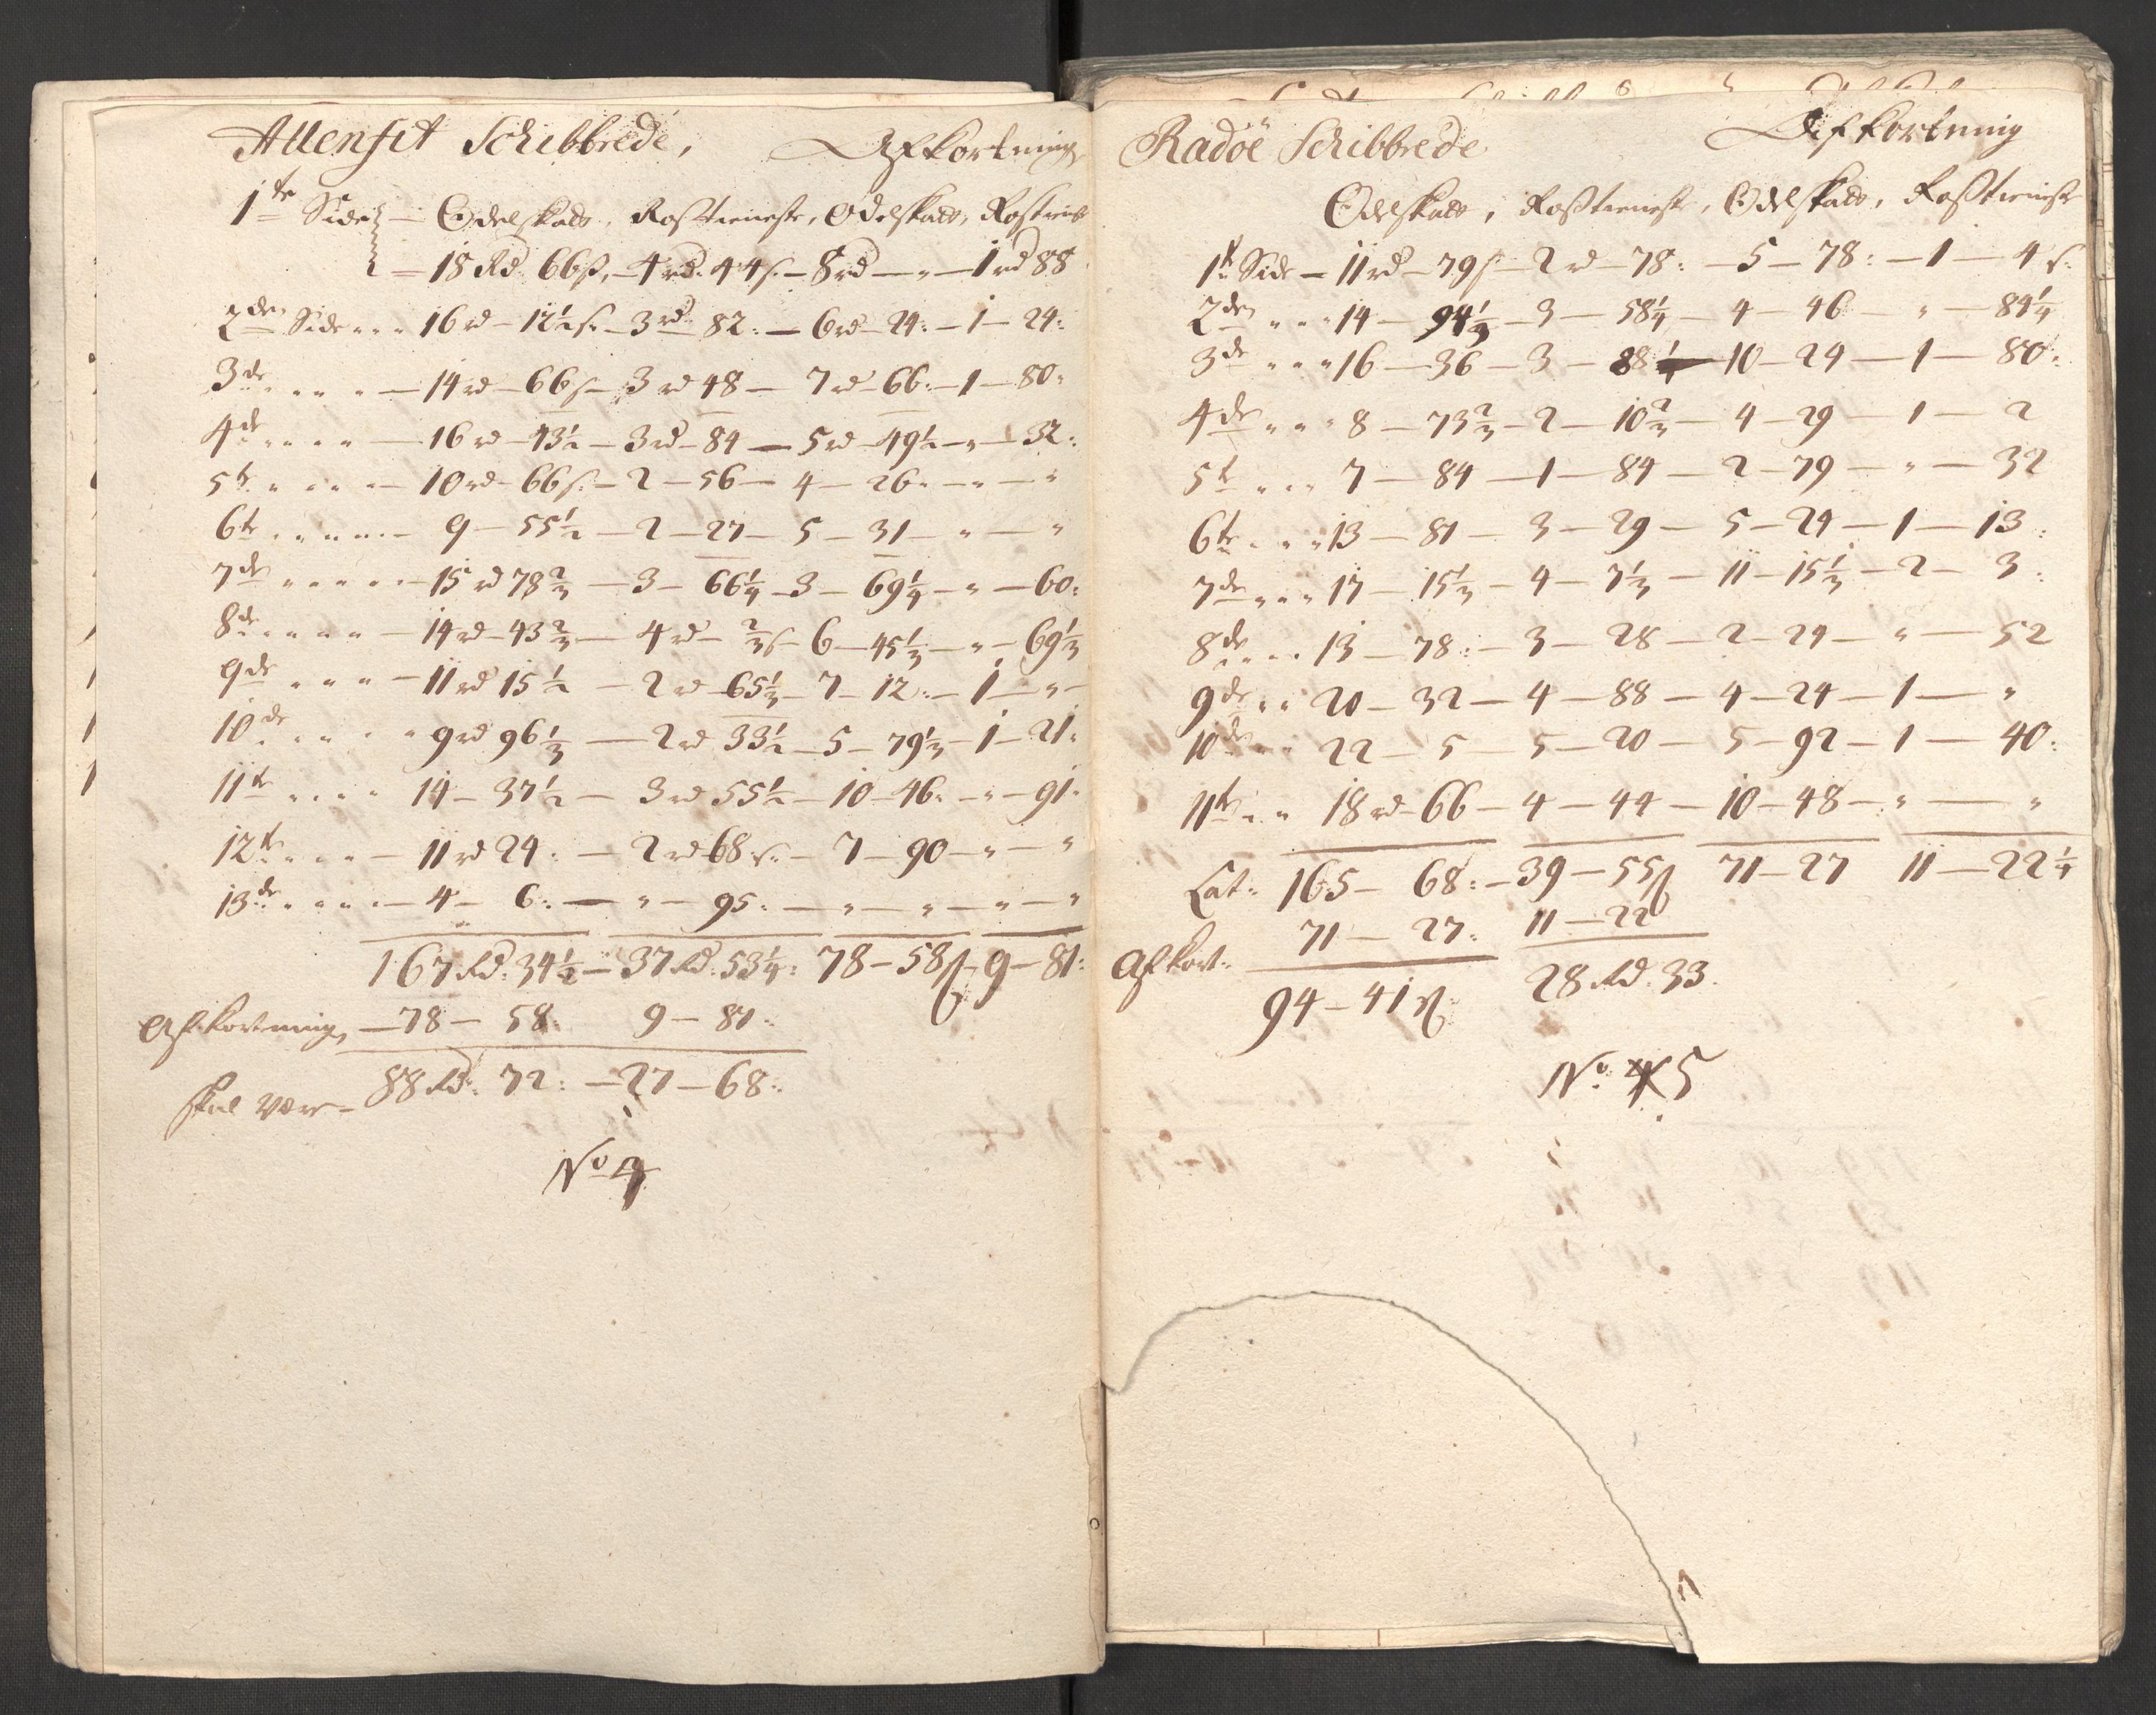 Allenfit Schibbrede, Afkortning
1te Side — Odelskatt, Rostieneste, Odelskatt, Rostienes
— 18 Rd 66ß, — 4 rd. 44 s. — 8 rd — „ — 1 rd 88
2den Side „ „ „ 16 rd — 12½ s. — 3 rd 82: — 6 rd — 24: — 1 — 24:
3de „ „ „ „ — 14 rd — 66 s — 3 rd 48 — 7 rd — 66: — 1 — 80:
4de „ „ „ „ — 16 rd — 43½ — 3 rd — 84 — 5 rd — 49½ — „ — 32:
5te „ „ „ „ — 10 rd — 66 s. — 2 — 56 — 4 — 26 „ — „ — „
6te „ „ „ „ „ — 9 — 55½ — 2 — 27 — 5 — 31 — „ — „
7de „ „ „ „ „ — 15 rd 78⅔ — 3 — 66¼ — 3 — 69¼ — „ — 60:
8de „ „ „ „ — 14 rd — 43⅔ — 4 rd — ⅔ s — 6 — 45⅓ — „ — 69⅓
9de „ „ „ — 11 rd 15½ — 2 rd — 65⅓ — 7 — 12: — 1 — „ —
10de „ „ „ „ 9 rd 96⅓ — 2 rd 33½ — 5 — 79⅓ — 1 — 21:
11te „ „ „ „ 14 — 37½ — 3 rd 55½ — 10 — 46: — „ — 91:
12te „ „ „ — 11 rd 24: — 2 rd 68 s. — 7 — 90 — „ — „
13de „ „ „ „ — 4 — 6: — „ — 95: — „ — „ — „ — „
167 Rd: 34½ — 37 Rd: 53¼: 78 — 58 ß 9 — 81:
Afkortning — 78 — 58: 9 — 81:
skal være — 88 Rd: 72: — 27 — 68:
No 4
Radöe Schibbrede Afkortning
Odelskatt, Rostieneste, Odelskatt, Rostieneste
1te Side — 11 rd — 79 s — 2 rd — 78: — 5 — 78: — 1 — 4 s.
2den „ „ „ 14 — 94⅓ — 3 — 58¼ — 4 — 46 — „ — 84¼
3de „ „ „ 16 — 36 — 3 — 88 — 10 — 24 — 1 — 80:
4de „ „ „ 8 — 73⅔ — 2 — 10⅔ — 4 — 29 — 1 — 2
5te „ „ „ 7 — 84 — 1 — 84 — 2 — 79 — „ — 32
6te „ „ „ 13 — 81 — 3 — 29 — 5 — 24 — 1 — 13:
7de „ „ „ 17 — 15⅓ — 4 — 7⅓ — 11 — 15⅓ — 2 — 3:
8de „ „ „ 13 — 78: — 3 — 28 — 2 — 24 — „ — 52
9de „ „ 20 — 32 — 4 — 88 — 4 — 24 — 1 — „
10de „ „ 22 — 5 — 5 — 20 — 5 — 92 — 1 — 40:
11te „ „ 18 rd — 66 — 4 — 44 — 10 — 48 — „ — „
Lat: 165 — 68: — 39 — 55 ß 71 — 27 11 — 22¼
Afkort: 71 — 27: 11 — 22
94 — 41 ß 28 Rd. 33.
No 5